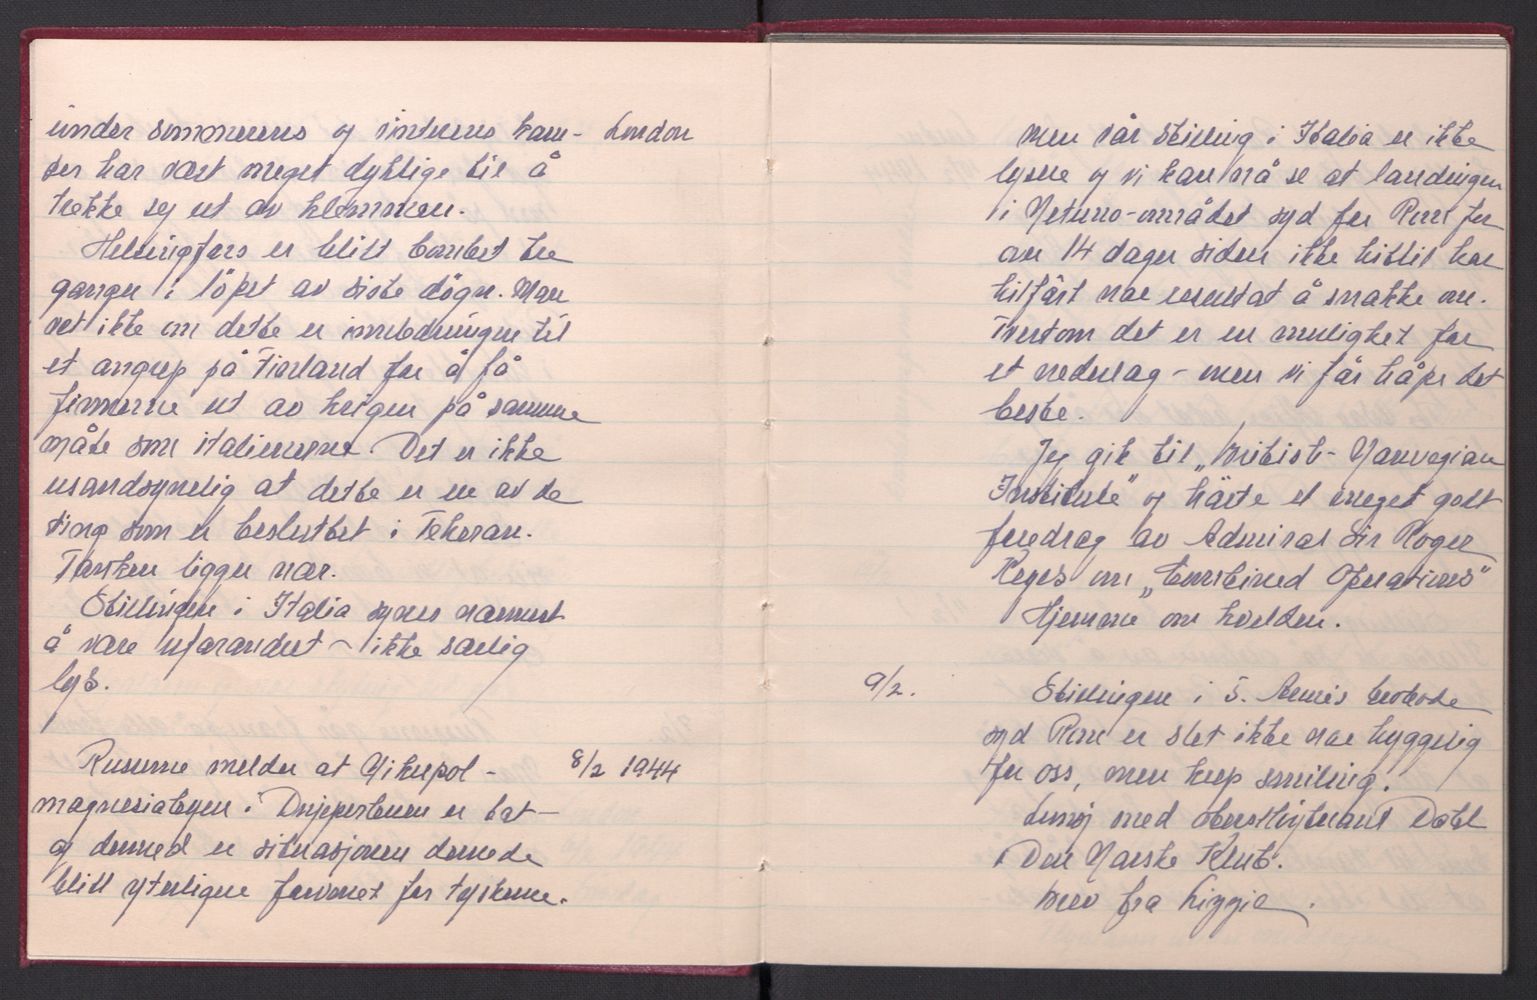 under sommerens og vinterens kam- London
per har vært meget dyktige til å
trekke seg ut av klemmen.
Helsingfors er blitt bombet tre
ganger i løpet av siste døgn. Man
vet ikke om dette er innledningen til
et angrep på Finland for å få
finnerne ut av krigen på samme
måte som italienerne. Det er ikke
usandsynelig at dette er en av de
ting som er besluttet i Teheran.
Tanken ligger nær.
Stillingen i Italia synes nærmest
å være uforandret - ikke særlig
lys.
Russerne melder at Nikopol- 8/2 1944
magnesiabyen i Dnjepr er tat -
og dermed er situasjonen dernede
blitt ytterligere forverret for tyskerne.
men vår stilling i Italia er ikke
lysere og vi kan nå se at landingen
i Netuno-området syd for Rom for
over 14 dager siden ikke hittil har
tilført noe resultat å snakke om.
Tvertom det er en mulighet for
et nederlag - men vi får håpe det
beste.
Jeg gik til „British-Norwegian
Institute" og hørte et meget godt
foredrag av Admiral Sir Roger
Keyes om „Combined Operations"
Hjemme om kvelden.
9/2. Stillingen i 5. Armes brohode
syd Rom er slet ikke noe hyggelig
for oss, men keep smiling.
Lunsj med oberstløytnant Dahl
„Den Norske Klub".
Brev fra Liggie.